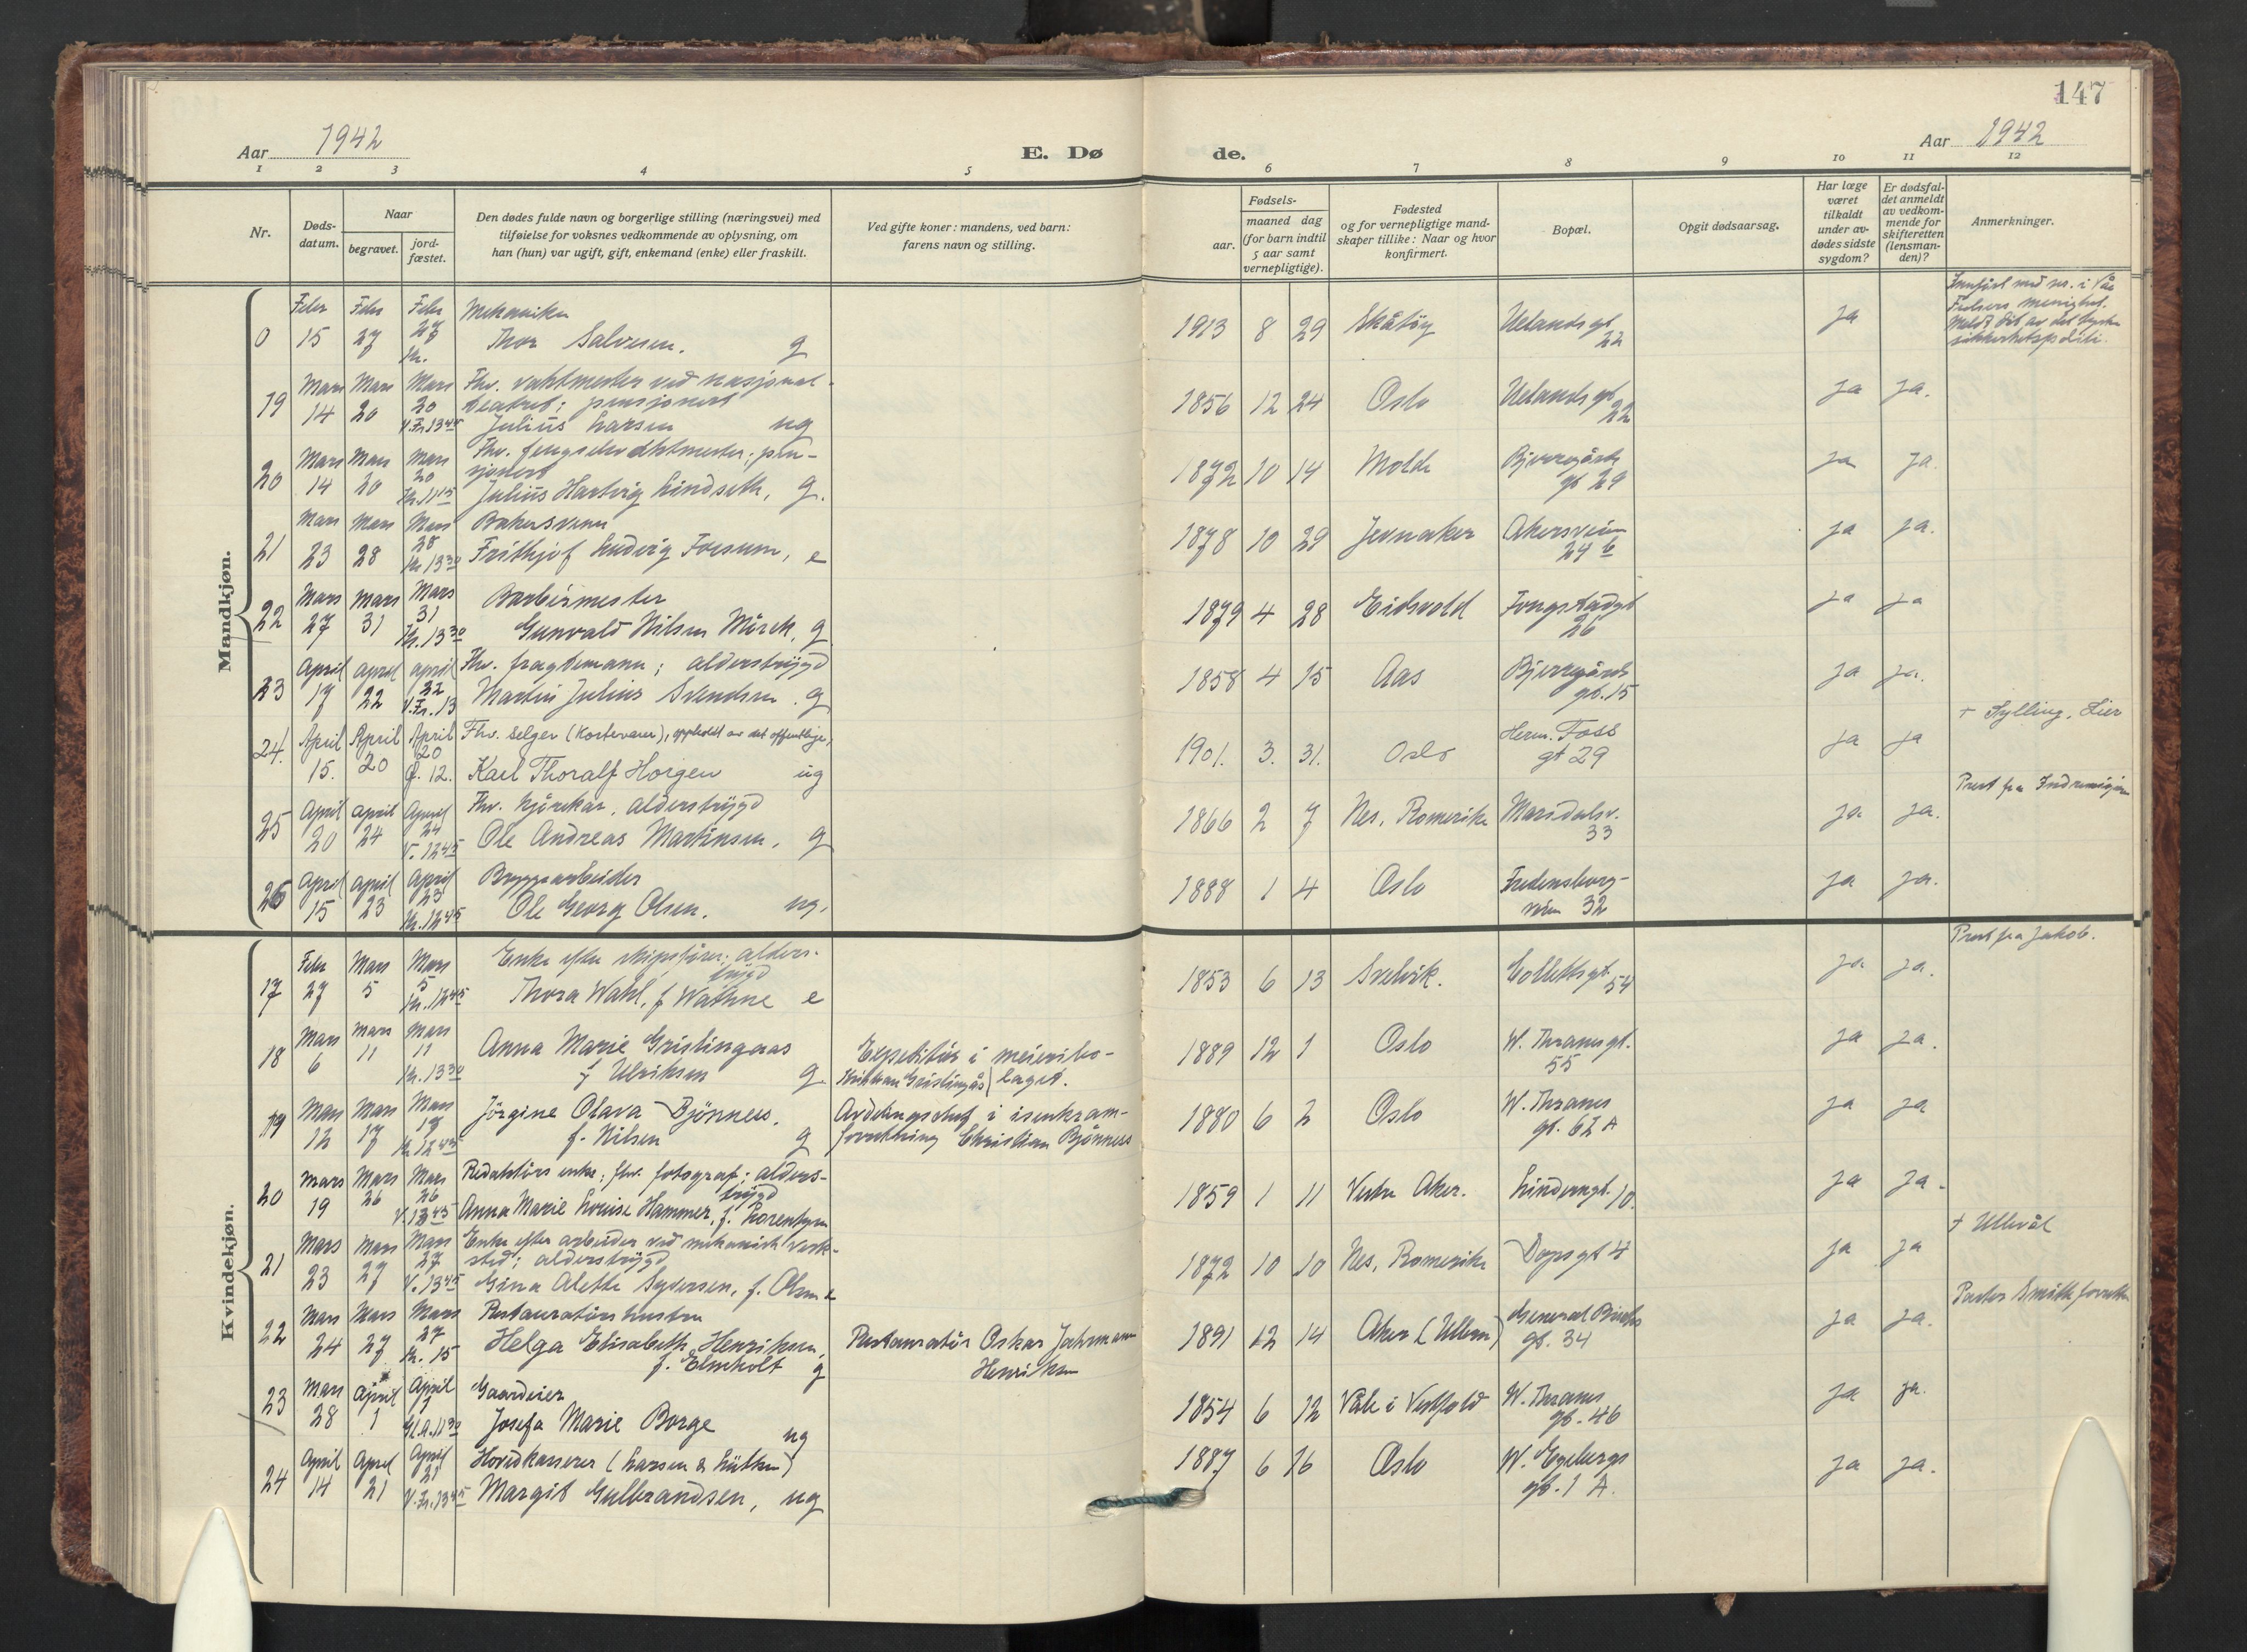 147
Aar 1942
E. Dø
de.
Aar 1942
1 2 3 4 5 6 7 8 9 10 11 12
Nr.
Døds-
datum.
Naar
begravet.
jord-
fæstet.
Den dødes fulde navn og borgerlige stilling (næringsvei) med
tilføielse for voksnes vedkommende av oplysning, om
han (hun) var ugift, gift, enkemand (enke) eller fraskilt.
Ved gifte koner: mandens, ved barn:
farens navn og stilling.
Fødsels-
aar.
maaned dag
(for barn indtil
5 aar samt
vernepligtige).
Fødested
og for vernepligtige mand-
skaper tillike: Naar og hvor
konfirmert.
Bopæl.
Opgit dødsaarsag.
Har læge
været
tilkaldt
under av-
dødes sidste
sygdom?
Er dødsfal-
det anmeldt
av vedkom-
mende for
skifteretten
(lensman-
den)?
Anmerkninger.
Mandkjøn.
Febr Febr Febr Mekaniker
0 15 27 27 Thor Salvesen. g 1913 8 29 Skåtøy Uelandsgt 22 ja
Kr.
Innført med nr. i Vår
Frelsers menighet.
Meldt hit av det tyske
sikkerhetspoliti.
Mars Mars Mars Fhv. vaktmester ved nasjonal-
19 14 20 20 teatret; pensjonert
V.Kr. 13 45 Julius Larsen ug 1856 12 24 Oslo Uelandsgt 22 ja ja.
Mars Mars Mars Fhv. fengselsvaktmester; pen-
20 14 20 20 sjonert
Kr. 11 15 Julius Hartvig Lindseth, g. 1872 10 14 Molde Bjerregårds gt 29 ja ja.
Mars Mars Mars Bakersvenn
21 23 28 28 Kr. 13 30 Frithjof Ludvig Fossum, e 1878 10 29 Jevnaker Akersveien 24 b ja ja.
Mars Mars Mars Barbermester
22 27 31 31 Kr. 13 30 Gunvald Nilsen Mørch, g 1879 4 28 Eidsvold Fougstadgt 26 ja ja
April April April Fhv. fragtemann; alderstrygd
23 17 22 22 V.Kr. 13 Martin Julius Svendsen. g 1858 4 15 Aas Bjerregårds gt. 15 ja ja.
April April April Fhv. selger (Kortevarer), oppholdt av det offentlige,
24. 15. 20 20 12. Karl Thoralf Horgen ug 1901. 3. 31. Oslo Herm. Foss gt 29 ja ja + Sylling, Lier
April April April Fhv. kjørekar, alderstrygd
25 20 24 24 V. 12 45 Ole Andreas Martinsen, g 1866 2 7 Nes, Romerike Maridalsv. 33 ja ja. Prest fra Indremisjon
April April April Bryggearbeider
26 15 23 23 Kr. 12 45 Ole Georg Olsen. ug. 1888 1 4 Oslo Fredensborg- veien 32 ja ja.
Kvindekjøn.
Febr Mars Mars Enke efter skipsfører; alders-
trygd
17 27 5 5 Kr. 12 45 Thora Wahl, f Wathne e 1853 6 13 Svelvik. Collettsgt. 54 ja ja. Prest fra Jakob.
Mars Mars Mars Anna Marie Gristingaas
18 6 11 11 Kr. 13 30 f Ulriksen g. Ekspeditør i meieribo-
laget. Kristian Gristingås 1889 12 1 Oslo W. Thranesgt. 55 ja ja.
Mars Mars Mars Jørgine Olava Bjønness.
19 12 17 17 Kr 12 45 f. Nilsen g Avdelingschef i isenkram-
forretning Christian Bjønness 1880 6 2 Oslo W. Thranes gt. 62 A ja ja
Mars Mars Mars Redaktørs enke; fhv. fotograf; alders-
trygd
20 19 26 26 V. 13 45 Anna Marie Louise Hammer, f. Lorentzen 1859 1 11 Vestre Aker. Linderngt. 10. ja ja.
Mars Mars Mars Enke efter arbeider ved mekanisk verk-
21 23 27 27 sted; alderstrygd
V. 13 45 Gina Alette Sydersen, f. Olsen e 1872 10 10 Nes, Romerike Dopsgt 4 ja ja + Ullevål
Mars Mars Mars Restauratørs hustru
22 24 27 27 Kr. 15 Helga Elisabeth Henriksen,
f. Elmholt g Restauratør Oskar Jahrmann
Henriksen 1891 12 14 Aker (Ullern) General Birchs gt. 34 ja ja. Pastor Smith forrettet
Mars April April Gaardeier
23 28 1 1 Gl.A. 11 30 Josefa Marie Borge ug 1854 6 12 Våle i Vestfold W. Thranes gt. 46 ja ja.
April April April Hovedkasserer (Larsen & Lütken)
24 14 21 21 V.Kr. 13 45 Margit Gulbrandsen, ug 1887 6 16 Oslo W. Egebergs gt. 1 A. ja ja.